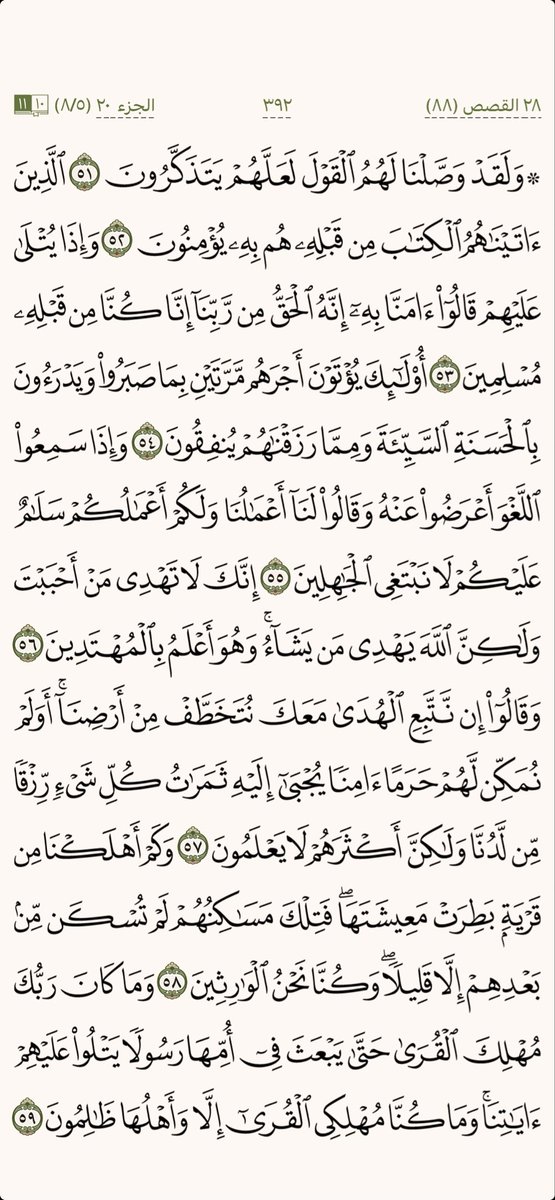 ٢٨ القصص (٨٨) ٣٩٢ الجزء ٢٠ (٨/٥) ١٠ ١١
۞ وَلَقَدْ وَصَّلْنَا لَهُمُ ٱلْقَوْلَ لَعَلَّهُمْ يَتَذَكَّرُونَ ٥١ ٱلَّذِينَ
ءَاتَيْنَٰهُمُ ٱلْكِتَٰبَ مِن قَبْلِهِۦ هُم بِهِۦ يُؤْمِنُونَ ٥٢ وَإِذَا يُتْلَىٰ
عَلَيْهِمْ قَالُوٓا۟ ءَامَنَّا بِهِۦٓ إِنَّهُ ٱلْحَقُّ مِن رَّبِّنَآ إِنَّا كُنَّا مِن قَبْلِهِۦ
مُسْلِمِينَ ٥٣ أُو۟لَٰٓئِكَ يُؤْتَوْنَ أَجْرَهُم مَّرَّتَيْنِ بِمَا صَبَرُوا۟ وَيَدْرَءُونَ
بِٱلْحَسَنَةِ ٱلسَّيِّئَةَ وَمِمَّا رَزَقْنَٰهُمْ يُنفِقُونَ ٥٤ وَإِذَا سَمِعُوا۟
ٱللَّغْوَ أَعْرَضُوا۟ عَنْهُ وَقَالُوا۟ لَنَآ أَعْمَٰلُنَا وَلَكُمْ أَعْمَٰلُكُمْ سَلَٰمٌ
عَلَيْكُمْ لَا نَبْتَغِى ٱلْجَٰهِلِينَ ٥٥ إِنَّكَ لَا تَهْدِى مَنْ أَحْبَبْتَ
وَلَٰكِنَّ ٱللَّهَ يَهْدِى مَن يَشَآءُ ۚ وَهُوَ أَعْلَمُ بِٱلْمُهْتَدِينَ ٥٦
وَقَالُوٓا۟ إِن نَّتَّبِعِ ٱلْهُدَىٰ مَعَكَ نُتَخَطَّفْ مِنْ أَرْضِنَآ ۚ أَوَلَمْ
نُمَكِّن لَّهُمْ حَرَمًا ءَامِنًا يُجْبَىٰٓ إِلَيْهِ ثَمَرَٰتُ كُلِّ شَىْءٍ رِّزْقًا
مِّن لَّدُنَّا وَلَٰكِنَّ أَكْثَرَهُمْ لَا يَعْلَمُونَ ٥٧ وَكَمْ أَهْلَكْنَا مِن
قَرْيَةٍۭ بَطِرَتْ مَعِيشَتَهَا ۖ فَتِلْكَ مَسَٰكِنُهُمْ لَمْ تُسْكَن مِّنۢ
بَعْدِهِمْ إِلَّا قَلِيلًا ۖ وَكُنَّا نَحْنُ ٱلْوَٰرِثِينَ ٥٨ وَمَا كَانَ رَبُّكَ
مُهْلِكَ ٱلْقُرَىٰ حَتَّىٰ يَبْعَثَ فِىٓ أُمِّهَا رَسُولًا يَتْلُوا۟ عَلَيْهِمْ
ءَايَٰتِنَا ۚ وَمَا كُنَّا مُهْلِكِى ٱلْقُرَىٰٓ إِلَّا وَأَهْلُهَا ظَٰلِمُونَ ٥٩